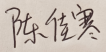 陈佳寒